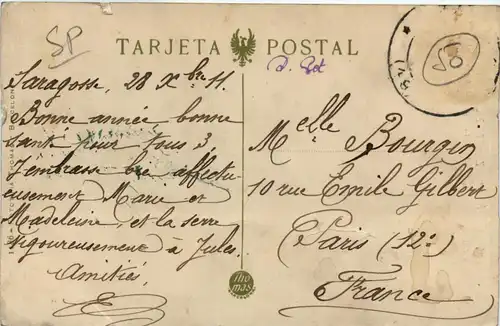 SP
TARJETA POSTAL
50
Saragosse, 28 Xbre 11.
Bonne année, bonne
santé pour tous 3,
J'embrasse bie affectu-
eusement Marie et
Madeleine, et la serre
vigoureusement à Jules.
Amitiés.
Melle Bourgin
10 rue Emile Gilbert
Paris (12e)
France
Tho
mas